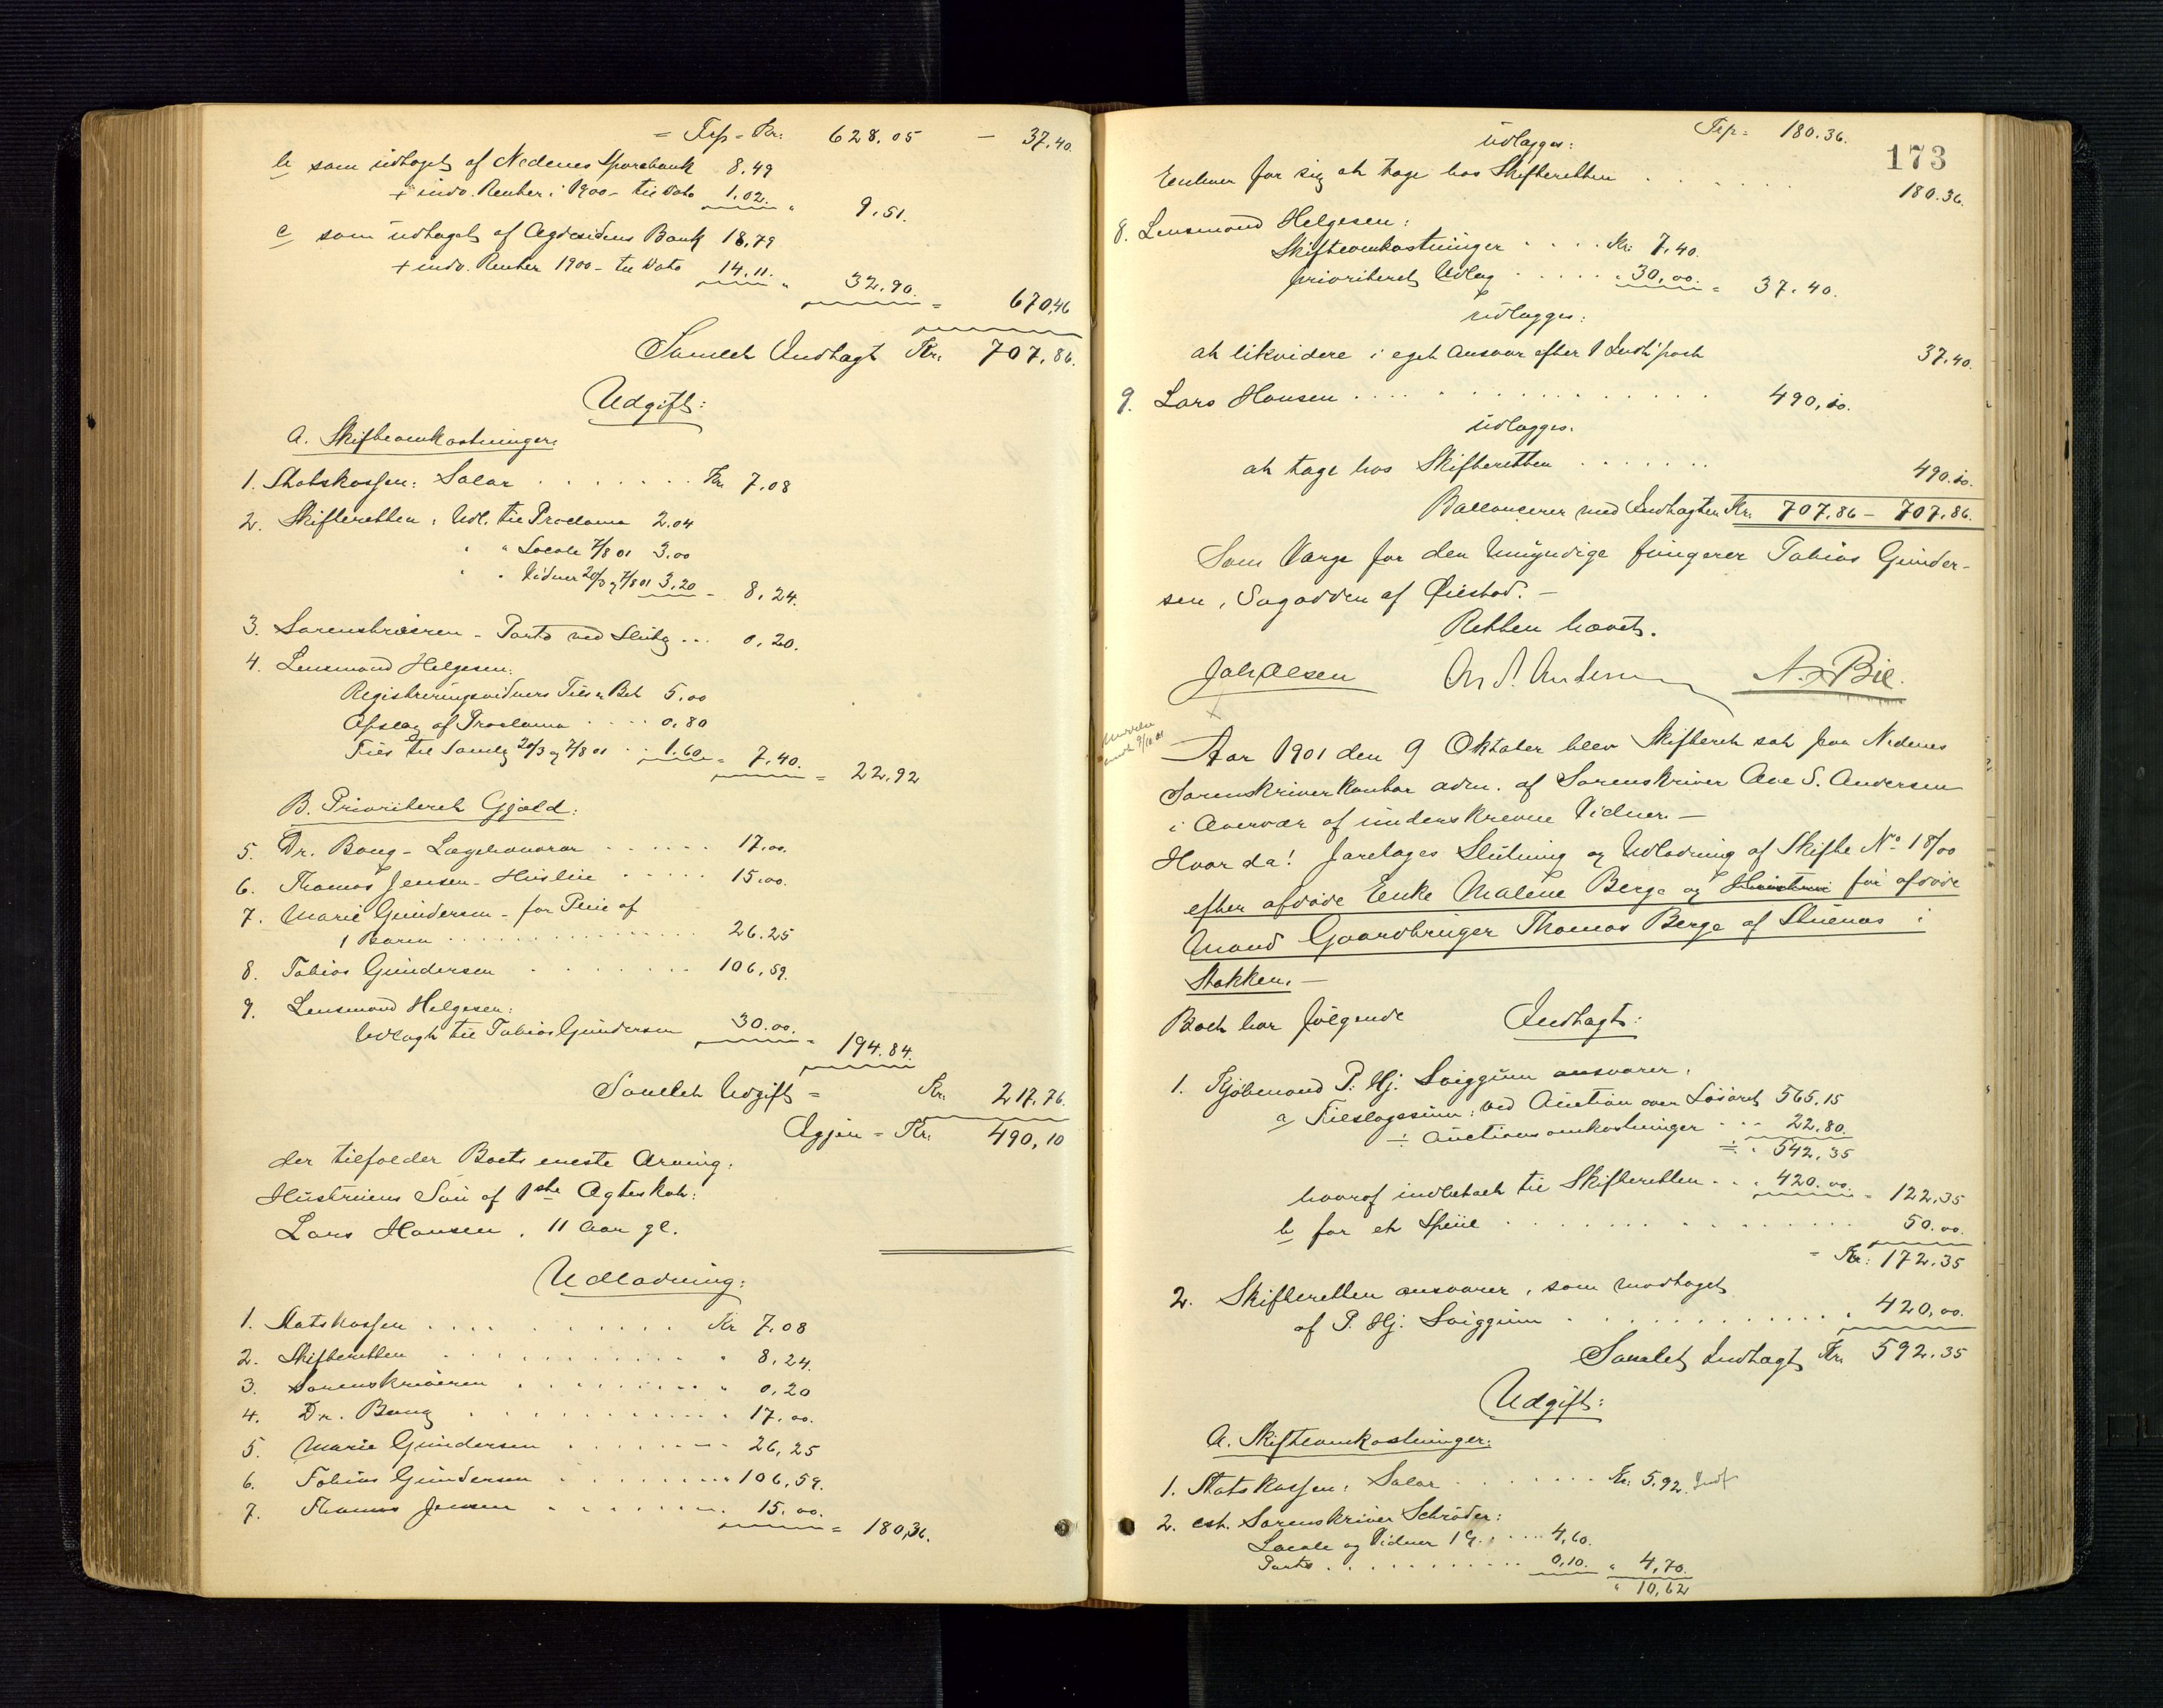 = Trp = Kr: 628.05 – 37.40.
b som udtaget af Nedenes Sparebank 8.49
+ indv. Renter i 1900 – til Dato 1.02. " 9.51.
c som udtaget af Agdesidens Bank 18,79
+ indv. Renter 1900 – til Dato 14.11. " 32.90. = 670,46
Samlet Indtægt Kr. 707.86.
Udgift:
A. Skifteomkostninger:
1. Statskassen: Salar . . . . . . . Kr. 7.08
2. Skifteretten: Udl. til Proclama 2.04
" " Locale 7/8 01 3.00
" " Vidner 20/3 og 7/8 01 3.20 – 8.24.
3. Sorenskriveren – Porto ved Slutg ... 0.20.
4. Lensmand Helgesen:
Registreringsvidners Tils. & Bet 5.00
Opslag af Proclama . . . . 0.80
Tils. til Samlg 20/3 og 7/8 01 . . 1.60 = 7.40. = 22,92
B. Prioriteret Gjæld:
5. Dr. Bang – Lægehonorar . . . . . . 17.00.
6. Thomas Jensen – Huslie . . . . . 15.00.
7. Marie Gundersen – for Pleie af
1 Barn . . . . . . . . . . . . . . . 26.25
8. Tobias Gundersen . . . . . . . . 106,59.
9. Lensmand Helgesen:
Udlagt til Tobias Gundersen 30.00. = 194.84.
Samlet Udgift = Kr. 217.76.
Igjen = Kr: 490,10
der tilfalder Boets eneste Arving:
Hustruens Søn af 1ste Ægteskab:
Lars Hansen, 11 Aar gl.
Udlodning:
1. Statskassen . . . . . . . . . . . Kr 7,08
2. Skifteretten . . . . . . . . . . . . " 8,24.
3. Sorenskriveren . . . . . . . . . . " 0,20
4. Dr. Bang . . . . . . . . . . . . . 17.00.
5. Marie Gundersen . . . . . . . . 26,25
6. Tobias Gundersen . . . . . . . . 106,59.
7. Thomas Jensen . . . . . . . . 15.00. = 180,36.
Trp = 180.36.
173
udlægges:
Enhver for sig at tage hos Skifteretten . . . . . . 180.36.
8. Lensmand Helgesen:
Skifteomkostninger . . . . Kr. 7,40.
prioriteret Udlæg . . . . . . 30,00. = 37.40.
udlægges:
at likvidere i eget Ansvar efter 1 Indt. post 37.40.
9. Lars Hansen . . . . . . . . . . . . . . . . . 490,10.
udlægges.
at tage hos Skifteretten . . . . . . . 490.10.
Ballancerer med Indtægten Kr. 707.86 – 707.86.
Som Værge for den Umyndige fungerer Tobias Gunder-
sen, Sagodden af Øiestad. –
Retten hævet.
Joh Olsen An S. Andersen N. Bie.
9/10 01
Aar 1901 den 9 Oktober blev Skifteret sat paa Nedenes
Sorenskriverkontor adm. af Sorenskriver Ave S. Andersen
i Overvær af underskrevne Vidner. –
Hvor da! foretages Slutning og Udlodning af Skifte No 18/00
efter afdøde Enke Malene Berge og for afdøde
Mand Gaardbruger Thomas Berge af Stuenæs i
Stokken. –
Boet har følgende Indtægt:
1. Kjøbmand P. Hj. Sviggum ansvarer,
a Tilslagssum ved Auction over Løsøret 565.15
÷ Auctionsomkostninger . . . 22.80.
= " 542,35
hvoraf indbetalt til Skifteretten . . . 420.00. = 122,35
b for et Speil . . . . . . . . . . . . . . . . 50.00.
= Kr: 172,35
2. Skifteretten ansvarer, som modtaget
af P. Hj. Sviggum . . . . . . . . . . . . . . " 420,00.
Samlet Indtægt Kr. 592.35
Udgift:
A. Skifteomkostninger:
1. Statskassen: Salar . . . . . . . Kr. 5.92.
2. cst. Sorenskriver Schrøder:
Locale og Vidner 1 G. . . . . 4,60.
Porto . . . . . . . . . . . . 0,10. " 4,70.
" 10,62